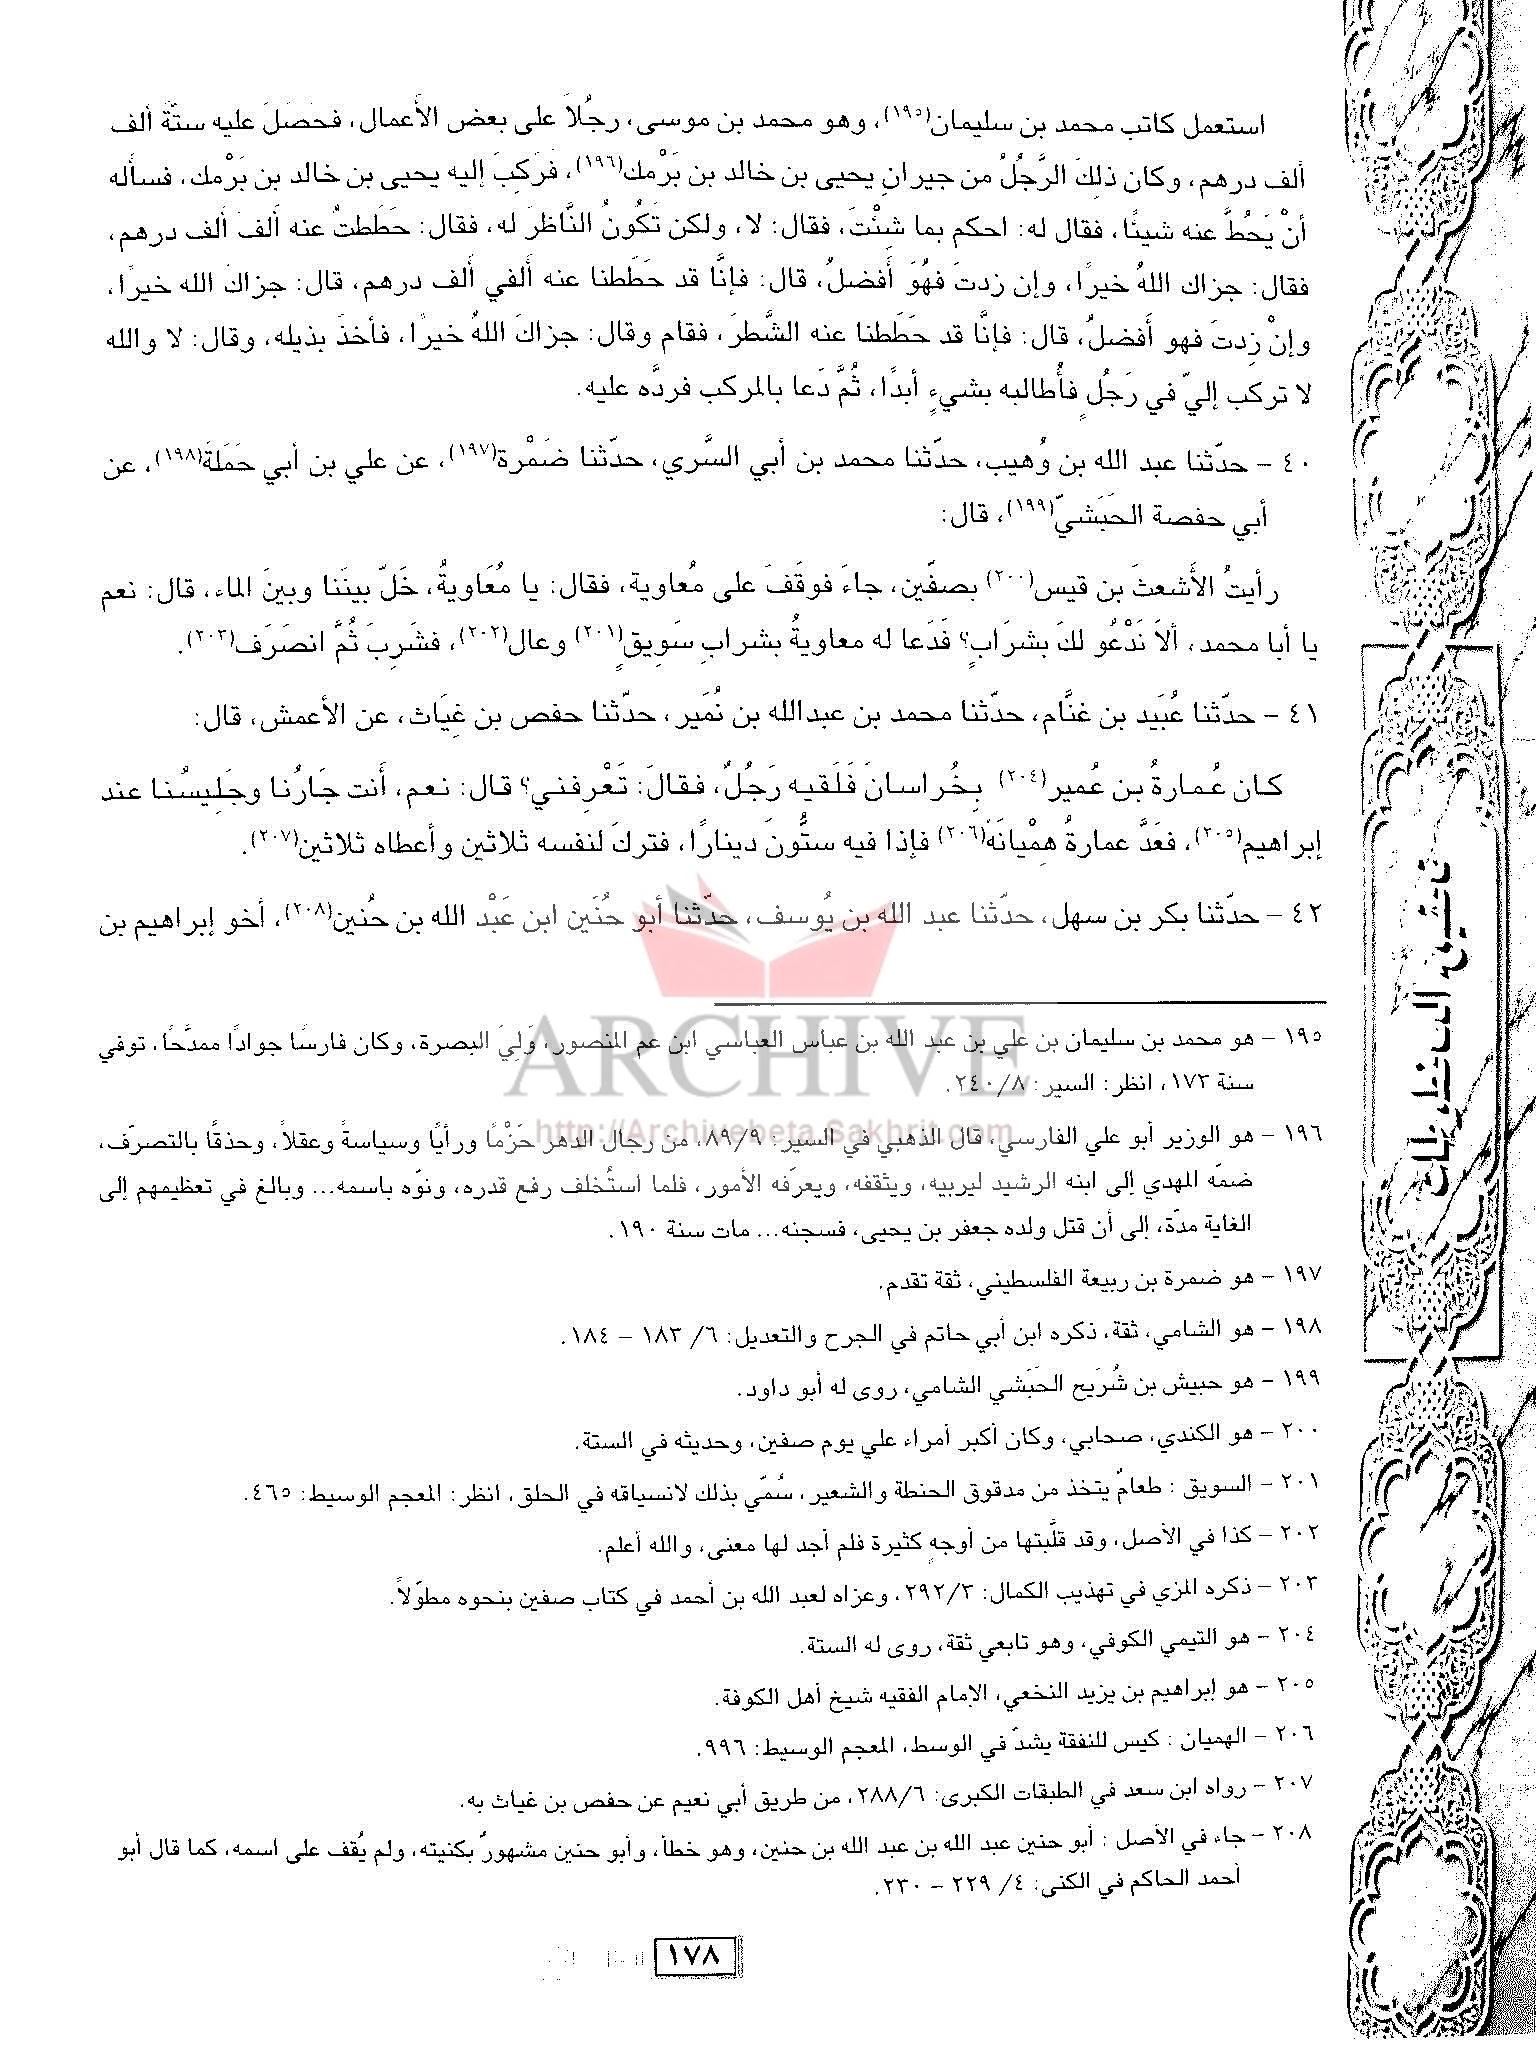 استعمل كاتب محمد بن سليمان(١٩٥)، وهو محمد بن موسى، رجُلاً على بعض الأَعمال، فحَصَلَ عليه ستَّةَ ألف
ألف درهم، وكان ذلِكَ الرَّجُلُ من جيرانِ يحيى بن خالد بن بَرْمك(١٩٦)، فَرَكِبَ إليه يحيى بن خالد بن بَرْمك، فسأَله
أنْ يَحُطَّ عنه شيئًا، فقال له: احكم بما شِئْتَ، فقال: لا، ولكن تَكُونُ النَّاظرَ له، فقال: حَطَطتُ عنه أَلفَ أَلف درهم،
فقال: جزاك اللهُ خيرًا، وإن زدتَ فهُوَ أَفضلُ، قال: فإنَّا قد حَطَطنا عنه أَلفي أَلف درهم، قال: جزاكَ الله خيرًا،
وإنْ زِدتَ فهو أَفضلُ، قال: فإنَّا قد حَطَطنا عنه الشَّطرَ، فقام وقال: جزاكَ اللهُ خيرًا، فأخذَ بذيله، وقال: لا والله
لا تركب إليّ في رَجُلٍ فأُطالبه بشيءٍ أبدًا، ثُمَّ دَعا بالمركب فردَّه عليه.
٤٠ - حدّثنا عبد الله بن وُهيب، حدّثنا محمد بن أبي السَّري، حدّثنا ضَمْرة(١٩٧)، عن علي بن أبي حَمَلَةَ(١٩٨)، عن
أبي حفصة الحَبَشيّ(١٩٩)، قال:
رأيتُ الأَشعثَ بن قيس(٢٠٠) بصفّين، جاءَ فوقَفَ على مُعاوية، فقال: يا مُعَاويةُ، خَلّ بينَنا وبينَ الماء، قال: نعم
يا أبا محمد، ألاَ نَدْعُو لكَ بشرَابٍ؟ فَدَعا له معاويةُ بشرابِ سَوِيقٍ(٢٠١) وعال(٢٠٢)، فشَرِبَ ثُمَّ انصَرَف(٢٠٣).
٤١ - حدّثنا عُبَيد بن غنَّام، حدّثنا محمد بن عبدالله بن نُمَير، حدّثنا حفص بن غِيَاث، عن الأعمش، قال:
كان عُمارةُ بن عُمير(٢٠٤) بِخُراسانَ فَلَقيه رَجُلٌ، فقالَ: تَعْرِفني؟ قال: نعم، أَنت جَارُنا وجَلِيسُنا عند
إبراهيم(٢٠٥)، فعَدَّ عمارةُ هِمْيانَهُ(٢٠٦) فإذا فيه ستُّونَ دينارًا، فتركَ لنفسه ثلاثين وأعطاه ثلاثين(٢٠٧).
٤٢ - حدّثنا بكر بن سهل، حدّثنا عبد الله بن يُوسف، حدّثنا أبو حُنَين ابن عَبْد الله بن حُنين(٢٠٨)، أخو إبراهيم بن
ARCHIVE
http://Archivebeta.Sakhrit.com
١٩٥ - هو محمد بن سليمان بن علي بن عبد الله بن عباس العباسي ابن عم المنصور، وَلِيَ البصرة، وكان فارسًا جوادًا ممدَّحًا، توفي
سنة ١٧٣، انظر: السير: ٢٤٠/٨.
١٩٦ - هو الوزير أبو علي الفارسي، قال الذهبي في السير: ٨٩/٩، من رجال الدهر حَزْمًا ورأيًا وسياسةً وعقلاً، وحذقًا بالتصرّف،
ضمّه المهدي إلى ابنه الرشيد ليربيه، ويثقفه، ويعرّفه الأمور، فلما استُخلف رفع قدره، ونوّه باسمه... وبالغ في تعظيمهم إلى
الغاية مدّة، إلى أن قتل ولده جعفر بن يحيى، فسجنه... مات سنة ١٩٠.
١٩٧ - هو ضمرة بن ربيعة الفلسطيني، ثقة تقدم.
١٩٨ - هو الشامي، ثقة، ذكره ابن أبي حاتم في الجرح والتعديل: ٦/ ١٨٣ – ١٨٤.
١٩٩ - هو حبيش بن شُرَيح الحَبَشي الشامي، روى له أبو داود.
٢٠٠ - هو الكندي، صحابي، وكان أكبر أمراء علي يوم صفين، وحديثه في الستة.
٢٠١ - السويق : طعامٌ يتخذ من مدقوق الحنطة والشعير، سُمّي بذلك لانسياقه في الحلق، انظر: المعجم الوسيط: ٤٦٥.
٢٠٢ - كذا في الأصل، وقد قلَّبتها من أوجهٍ كثيرة فلم أجد لها معنى، والله أعلم.
٢٠٣ - ذكره المزي في تهذيب الكمال: ٢٩٢/٣، وعزاه لعبد الله بن أحمد في كتاب صفين بنحوه مطوّلاً.
٢٠٤ - هو التيمي الكوفي، وهو تابعي ثقة، روى له الستة.
٢٠٥ - هو إبراهيم بن يزيد النخعي، الإمام الفقيه شيخ أهل الكوفة.
٢٠٦ - الهميان : كيس للنفقة يشدّ في الوسط، المعجم الوسيط: ٩٩٦.
٢٠٧ - رواه ابن سعد في الطبقات الكبرى: ٢٨٨/٦، من طريق أبي نعيم عن حفص بن غياث به.
٢٠٨ - جاء في الأصل : أبو حنين عبد الله بن عبد الله بن حنين، وهو خطأ، وأبو حنين مشهورٌ بكنيته، ولم يُقف على اسمه، كما قال أبو
أحمد الحاكم في الكنى: ٤/ ٢٢٩ – ٢٣٠.
١٧٨